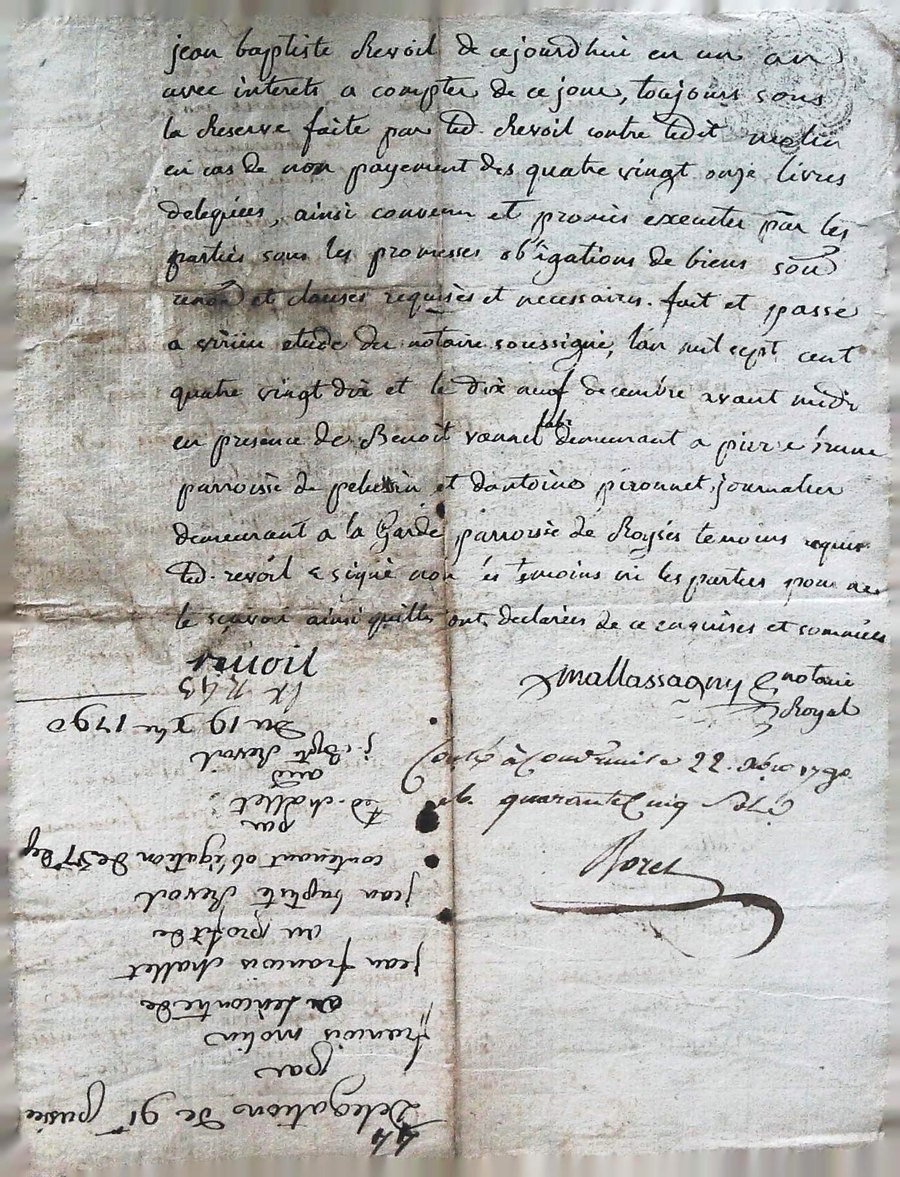 jean baptiste Revoil de cejourdhui en un an
avec interets a compter de ce jour, toujours sous
la Reserve faite par led. Revoil contre ledit molin
en cas de non payement des quatre vingt onze livres
deleguées, ainsi convenu et promis executer par les
parties sous les promesses obligations de biens
et clauses requises et necessaires. fait et passé
a virieu etude du notaire soussigné, l'an mil sept cent
quatre vingt dix et le dix neuf decembre avant midi
en presence de Benoit vannel fabr demeurant a pierre
parroisse de pelussin et dantoine pironnet journalier
demeurant a la Garde parroisse de Roysés temoins requis
led. revoil a signé non les temoins ni les parties pour ne
le sçavoir ainsi quils ont declarées de ce enquises et sommées
revoil
Mallassagny notaire
Royal
à Condrieu le 22. Xbre 1790
quarante cinq sols
Borel
44
Delegation de 91 passée
par
francois molin
a lencontre de
jean francois challet
au profit de
jean baptiste Revoil
contenant obligation de
par
led. challet
aud
j. bpte Revoil
Du 19 Xbre 1790